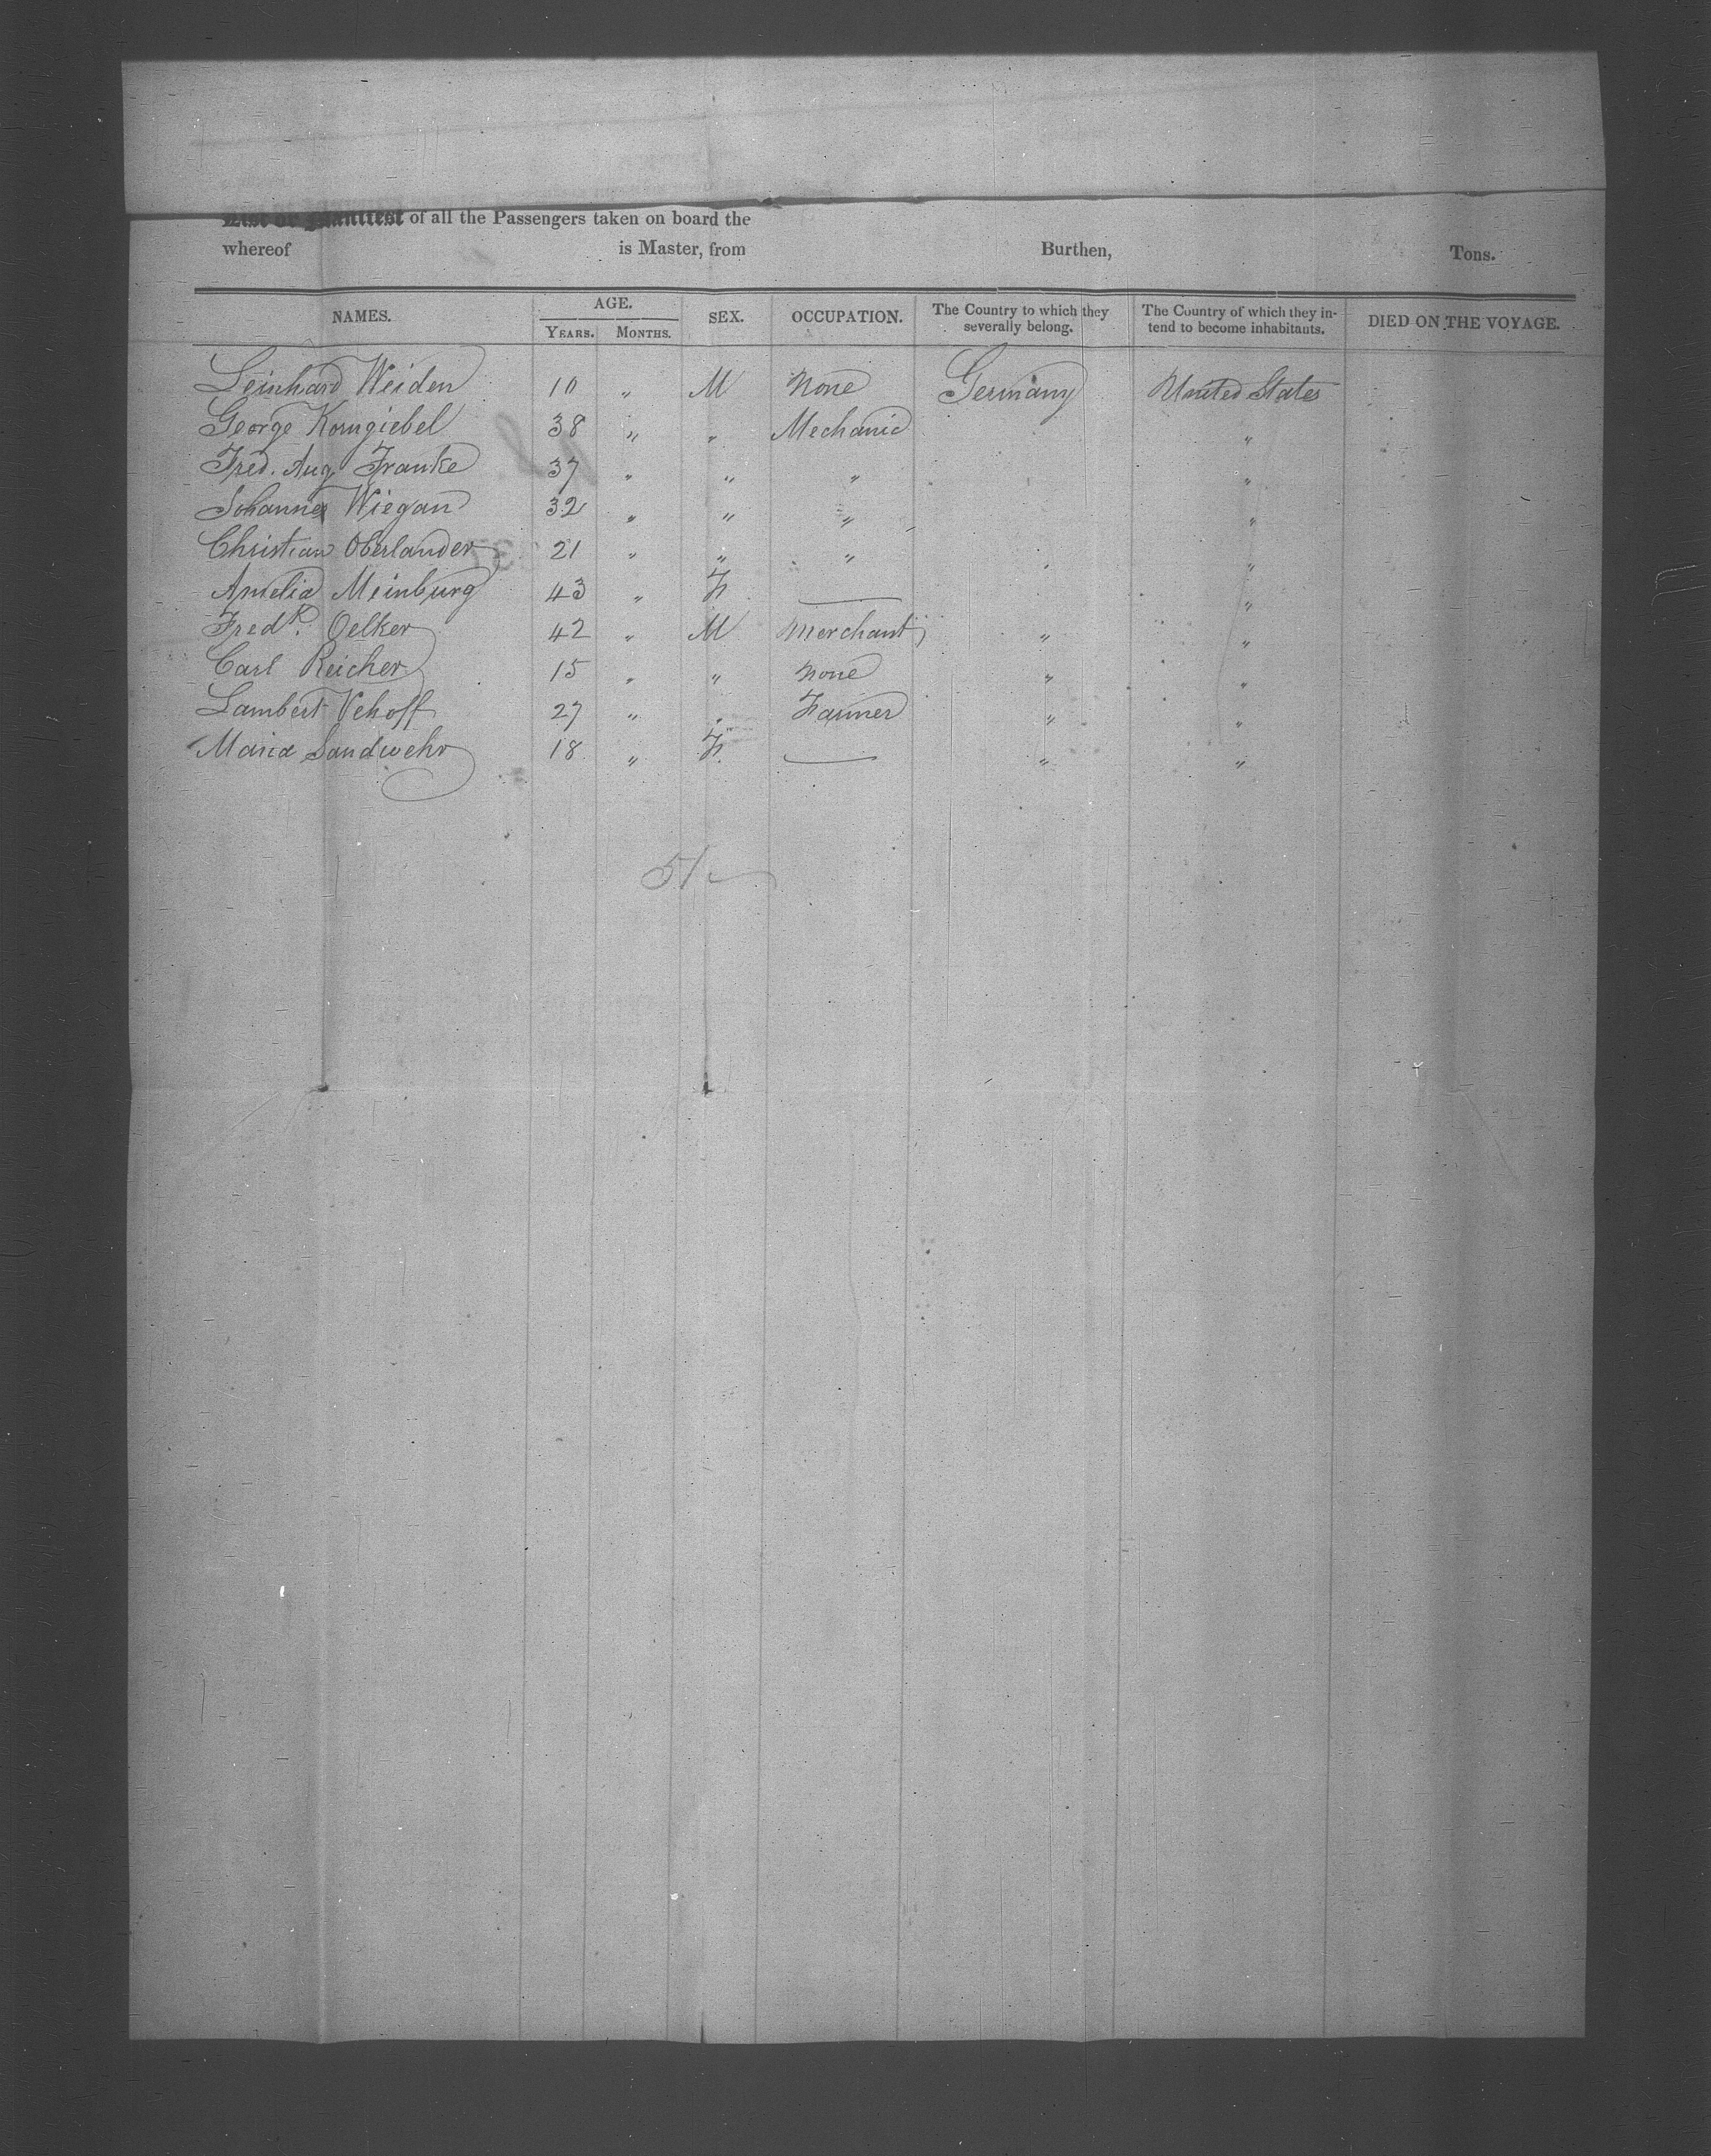 List or Manifest of all the Passengers taken on board the
whereof is Master, from Burthen, Tons.
NAMES. AGE. YEARS. MONTHS. SEX. OCCUPATION. The Country to which they severally belong. The Country of which they intend to become inhabitants. DIED ON THE VOYAGE.
Leinhard Weiden 10 " M None Germany United States
George Korngiebel 38 " " Mechanic "
Fred. Aug Franke 37 " " " "
Johannes Wiegand 32 " " " "
Christian Oberlander 21 " " " "
Amelia Meinburg 43 " F — "
Fredk. Oelker 42 " M Merchant " "
Carl Reicher 15 " " None " "
Lambert Vehoff 27 " " Farmer " "
Maria Sandwehr 18 " F — " "
51